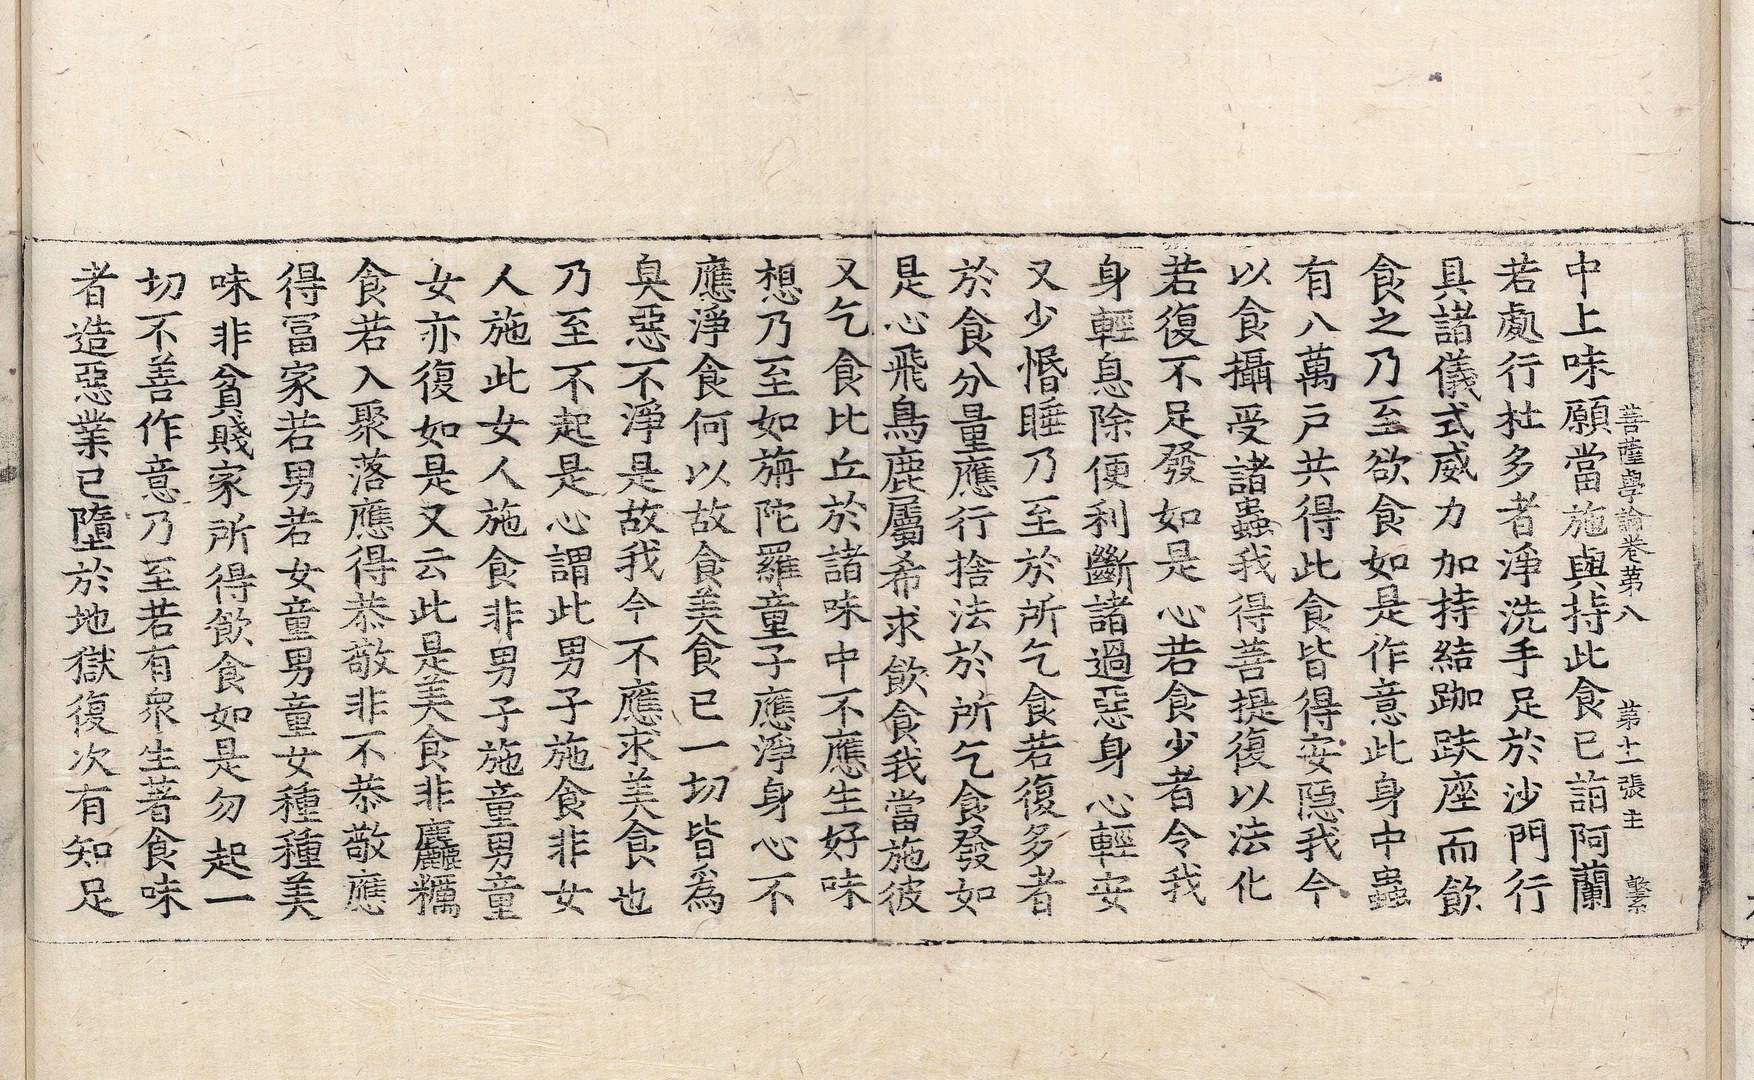 菩薩學論卷第八 第十一張 主 繫
中上味願當施與持此食已詣阿蘭
若處行杜多者淨洗手足於沙門行
具諸儀式威力加持結跏趺座而飲
食之乃至欲食如是作意此身中蟲
有八萬戶共得此食皆得安隱我今
以食攝受諸蟲我得菩提復以法化
若復不足發如是心若食少者令我
身輕息除便利斷諸過惡身心輕安
又少惛睡乃至於所乞食若復多者
於食分量應行捨法於所乞食發如
是心飛鳥鹿屬希求飲食我當施彼
又乞食比丘於諸味中不應生好味
想乃至如旃陀羅童子應淨身心不
應淨食何以故食美食已一切皆爲
臭惡不淨是故我今不應求美食也
乃至不起是心謂此男子施食非女
人施此女人施食非男子施童男童
女亦復如是又云此是美食非麤糲
食若入聚落應得恭敬非不恭敬應
得冨家若男若女童男童女種種美
味非貧賤家所得飲食如是勿起一
切不善作意乃至若有衆生著食味
者造惡業已墮於地獄復次有知足